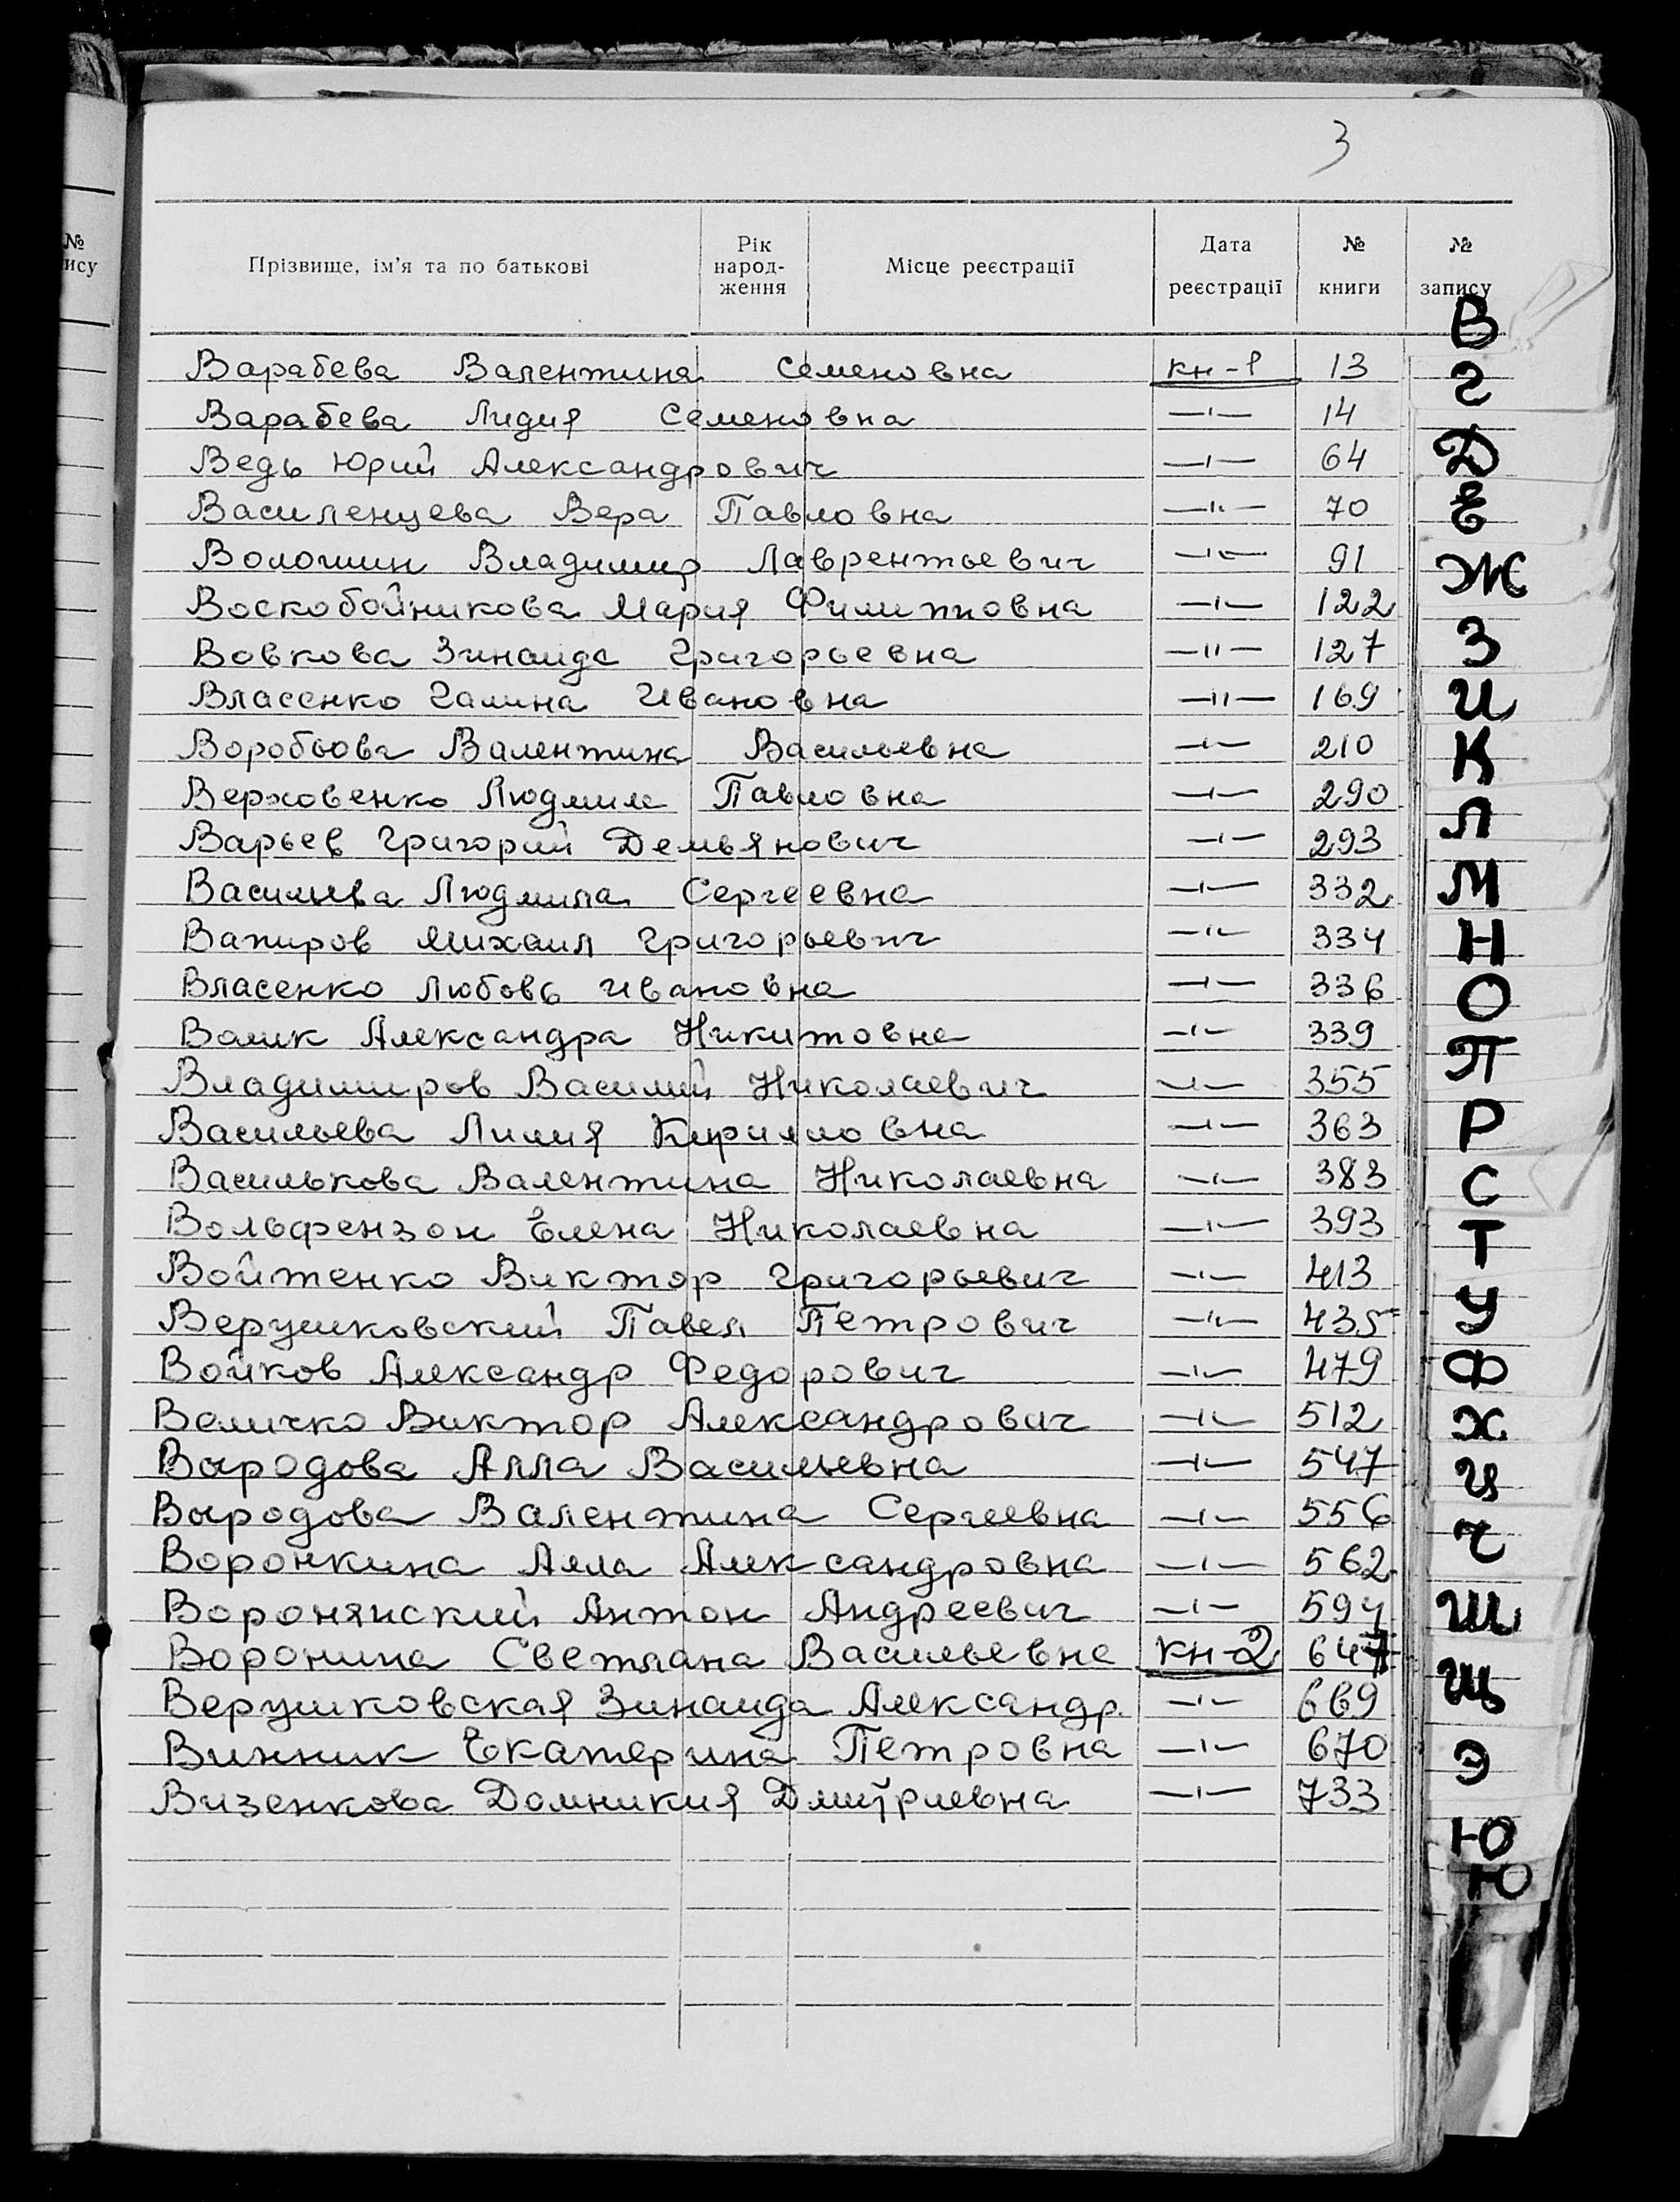 3
№
ису
Прізвище, ім'я та по батькові
Рік
народ-
ження
Місце реєстрації
Дата
реєстрації
№
книги
№
запису
Варабева Валентина Семеновна кн-1 13
Варабева Лидия Семеновна —ı— 14
Ведь Юрий Александрович —ı— 64
Василенцева Вера Павловна —ıı— 70
Волошин Владимир Лаврентьевич —ı— 91
Воскобойникова Мария Филипповна —ı— 122
Вовкова Зинаида Григорьевна —ıı— 127
Власенко Галина Ивановна —ıı— 169
Воробьова Валентина Васильевна —ı— 210
Верховенко Людмила Павловна —ı— 290
Варьев Григорий Демьянович —ı— 293
Васильева Людмила Сергеевна —ı— 332
Вапиров Михаил Григорьевич —ı— 334
Власенко Любовь Ивановна —ı— 336
Валик Александра Никитовна —ı— 339
Владимиров Василий Николаевич —ı— 355
Васильева Лилия Кирилловна —ı— 363
Василькова Валентина Николаевна —ı— 383
Вольфензон Елена Николаевна —ı— 393
Войтенко Виктор Григорьевич —ı— 413
Верушковский Павел Петрович —ıı— 435
Войков Александр Федорович —ı— 479
Величко Виктор Александрович —ı— 512
Выродова Алла Васильевна —ı— 547
Выродова Валентина Сергеевна —ı— 556
Воронкина Алла Александровна —ı— 562
Воронянский Антон Андреевич —ı— 594
Воронина Светлана Васильевна кн-2 647
Верушковская Зинаида Александр. —ı— 669
Винник Екатерина Петровна —ı— 670
Визенкова Домникия Дмитриевна —ı— 733
В
Г
Д
Е
Ж
З
И
К
Л
М
Н
О
П
Р
С
Т
У
Ф
Х
Ц
Ч
Ш
Щ
Э
Ю
Ю